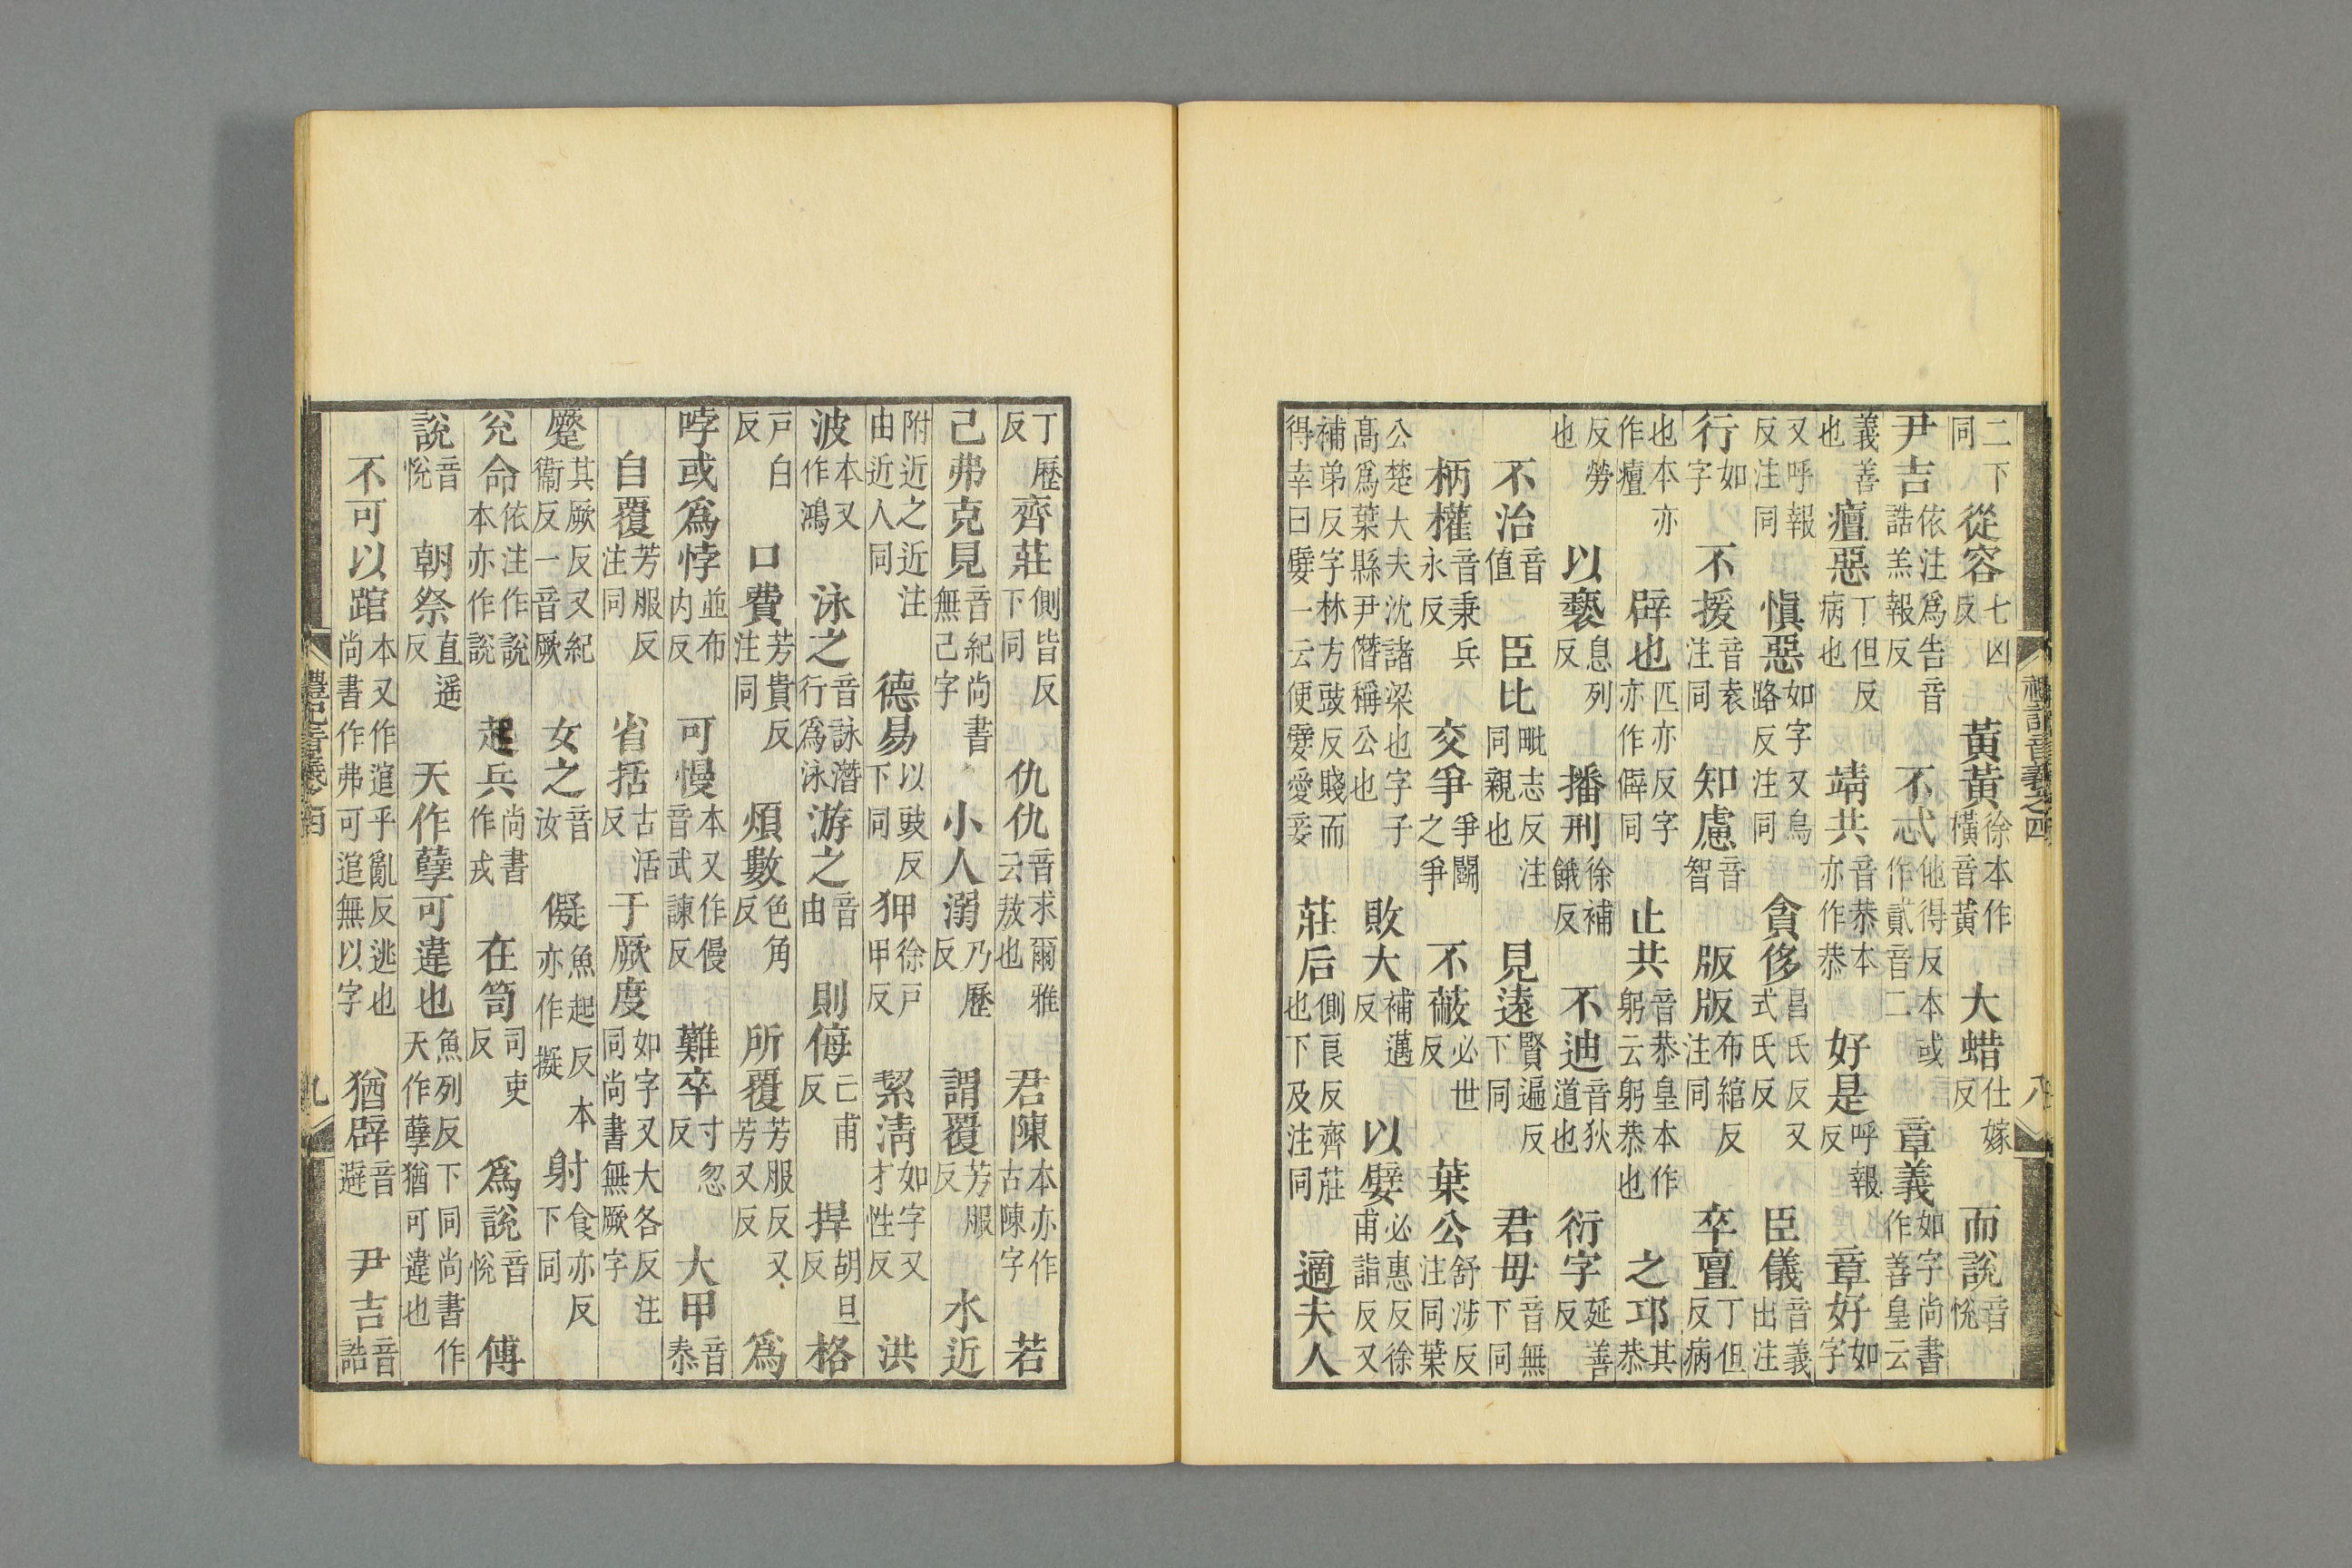 禮記音義之四
八
二下同從容七凶反黃黃徐本作橫音黃大蜡仕嫁反而說音悅
尹吉依注爲告音誥羔報反不忒他得反本或作貳音二章義如字尚書作善皇云
義善也癉惡丁但反病也靖共音恭本亦作恭好是呼報反章好如字
又呼報反注同愼惡如字又烏路反注同貪侈昌氏反又式氏反臣儀音義出注
行如字不援音袁注同知慮音智版版布綰反注同卒亶丁但反病
也本亦作癉辟也匹亦反字亦作僻同止共音恭皇本作躬云躬恭也之邛其恭
反勞也以褻息列反播刑徐補餓反不迪音狄道也衍字延善反
不治音値臣比毗志反注同親也見遠賢遍反下同君毋音無下同
柄權音秉兵永反交爭爭鬬之爭不蔽必世反葉公舒涉反注同葉
公楚大夫沈諸梁也字子高爲葉縣尹僭稱公也敗大補邁反以嬖必惠反徐甫詣反又
補弟反字林方豉反賤而得幸曰嬖一云便嬖愛妾莊后側良反齊莊也下及注同適夫人
丁歷反齊莊側皆反下同仇仇音求爾雅云敖也君陳本亦作古陳字若
己弗克見音紀尚書無己字小人溺乃歷反謂覆芳服反水近
附近之近注由近人同德易以豉反下同狎徐戶甲反絜淸如字又才性反洪
波本又作鴻泳之音詠潛行爲泳游之音由則侮亡甫反捍胡旦反格
戶白反口費芳貴反注同煩數色角反所覆芳服反又芳又反爲
哱或爲悖並布內反可慢本又作僈音武諫反難卒寸忽反大甲音泰
自覆芳服反注同省括古活反于厥度如字又大各反注同尚書無厥字
蹷其厥反又紀衞反一音厥女之音汝儗魚起反本亦作擬射食亦反下同
兊命依注作說本亦作說起兵尚書作戎在笥司吏反爲說音悅傅
說音悅朝祭直遥反天作孽可違也魚列反下同尚書作天作孽猶可違也
不可以踣本又作逭乎亂反逃也尚書作弗可逭無以字猶辟音避尹吉音誥
禮記音義之四
九